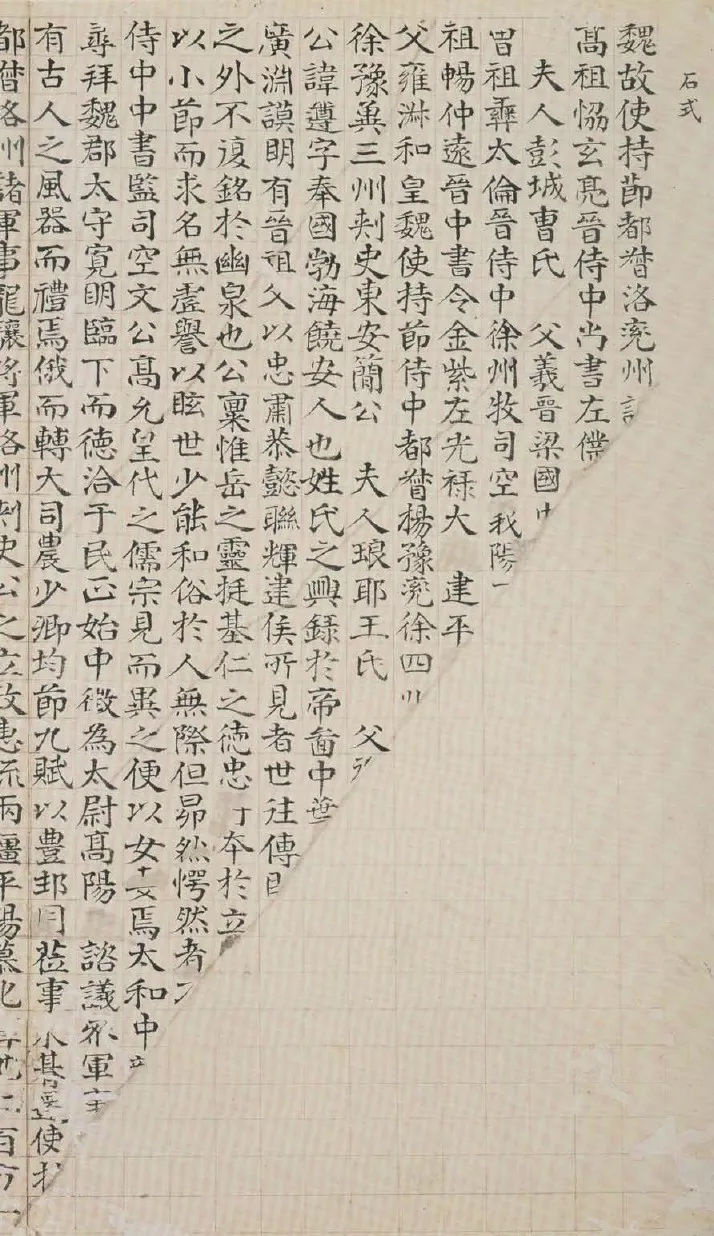 石式
魏故使持節都督洛兖州
高祖協玄亮晉侍中尚書左僕
夫人彭城曹氏 父羲晉梁國
曾祖彝太倫晉侍中徐州牧司空義陽
祖暢仲遠晉中書令金紫左光祿大 建平
父雍淑和皇魏使持節侍中都督楊豫兖徐四
徐豫冀三州刺史東安簡公 夫人琅耶王氏 父
公諱遵字奉國勃海饒安人也姓氏之興錄於帝啚中葉
廣淵謨明有晉祖父以忠肅恭懿聯輝建侯所見者世往傳
之外不復銘於幽泉也公稟惟岳之靈挺基仁之德忠 本於立
以小節而求名無虛譽以眩世少能和俗於人無際但昂然愕然者
侍中中書監司空文公高允皇代之儒宗見而異之便以女妻焉太和中
尋拜魏郡太守寬明臨下而德洽于民正始中徵為太尉高陽 諮議參軍
有古人之風器而禮焉俄而轉大司農少卿均節九賦以豊邦用莅事 使
都督洛州諸軍事龍驤將軍洛州刺史公之立政惠流兩疆平陽慕化 百